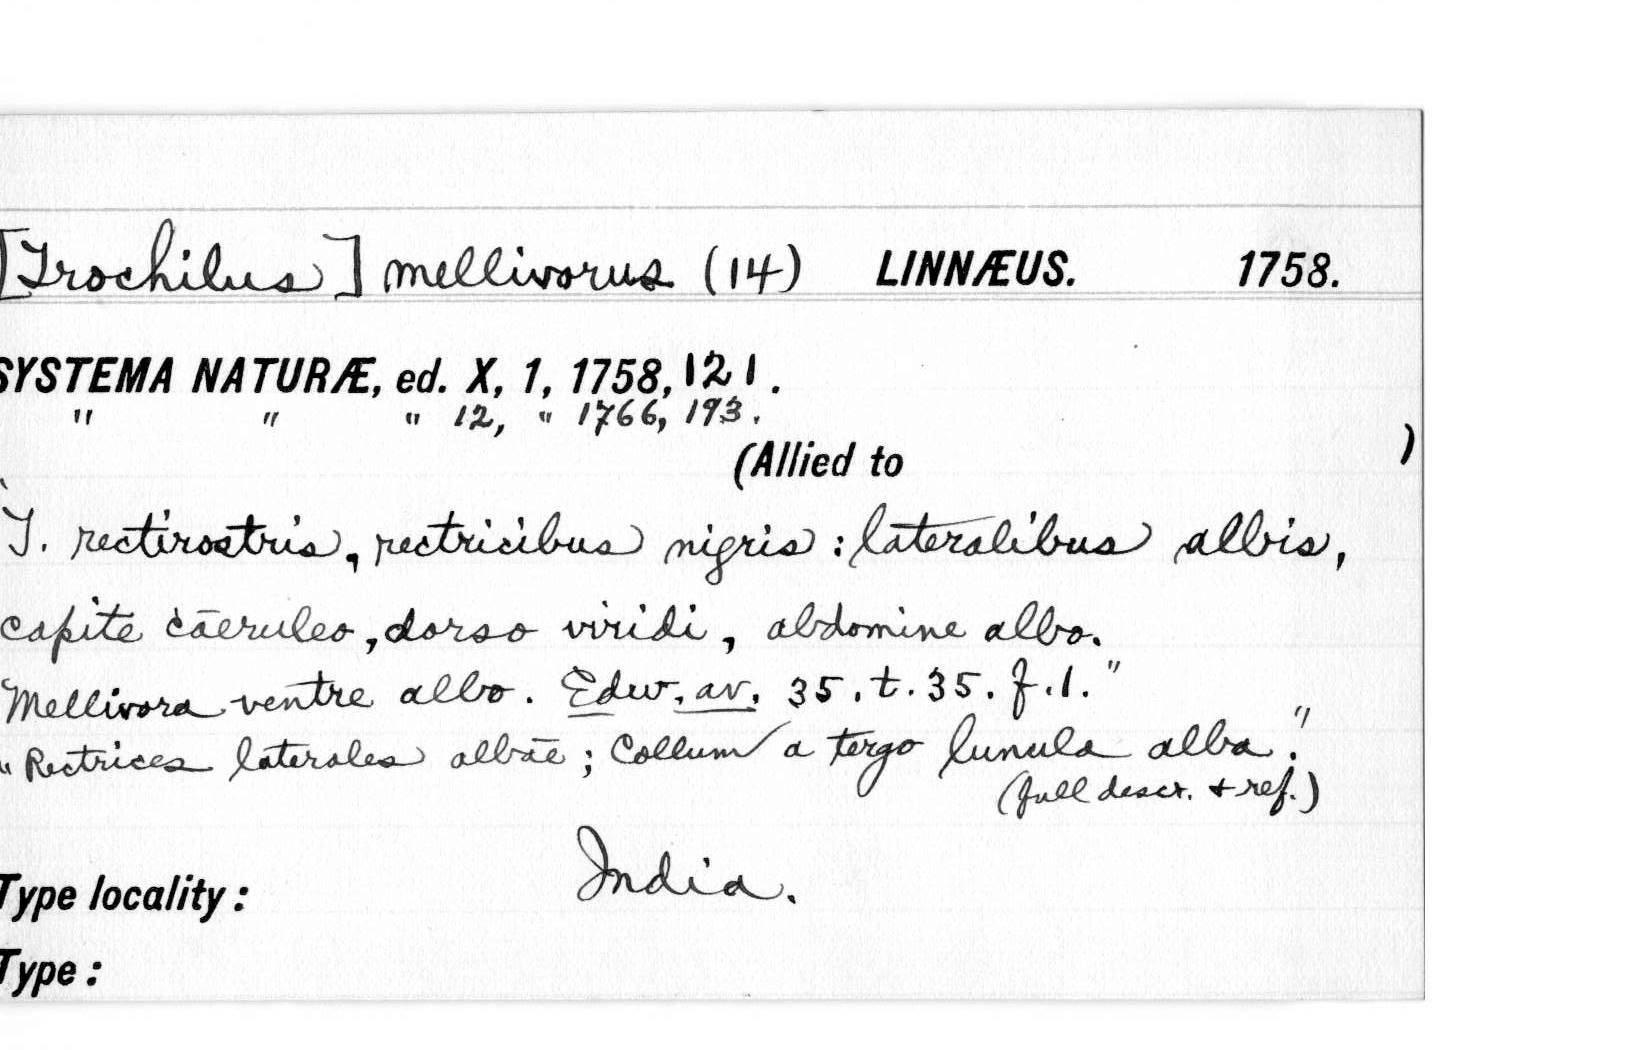 [Trochilus] mellivorus (14) LINNÆUS. 1758.
SYSTEMA NATURÆ, ed. X, 1, 1758, 121.
" " " 12, " 1766, 193.
(Allied to )
"T. rectirostris, rectricibus nigris: lateralibus albis,
capite cāeruleo, dorso viridi, abdomine albo.
Mellivora ventre albo. Edw. av. 35. t. 35. f. 1."
"Rectrices laterales albāe; Collum a tergo lunula alba."
(full descr. + ref.)
Type locality: India.
Type: